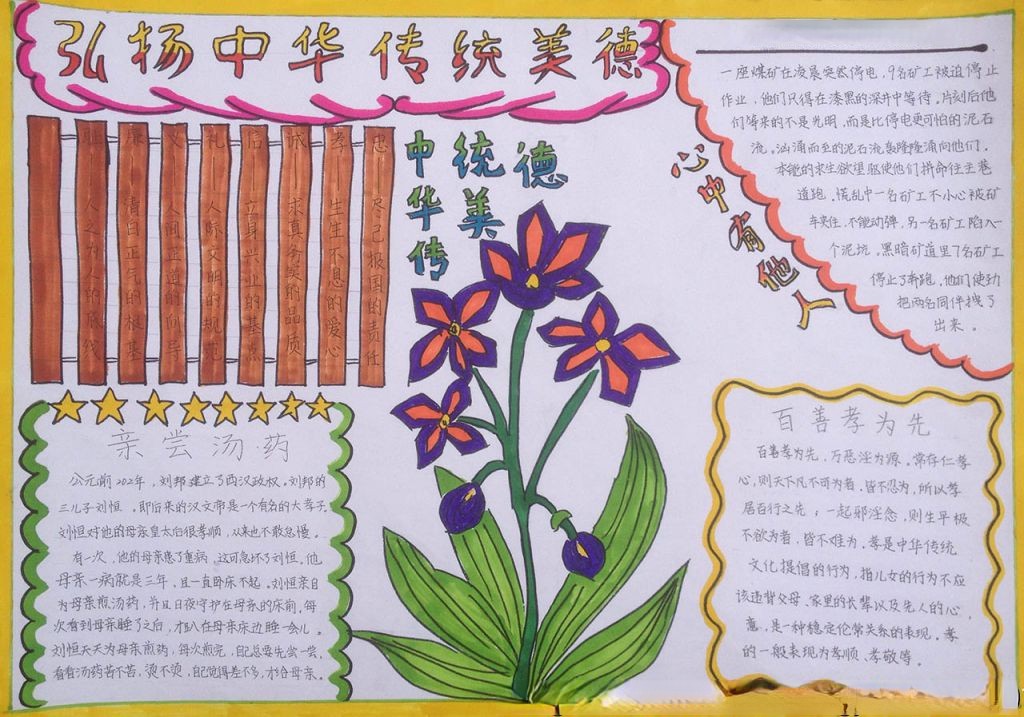 弘扬中华传统美德
忠——尽己报国的责任
孝——生生不息的爱心
诚——求真务实的品质
信——立身兴业的基点
礼——人际文明的规范
义——人间正道的向导
廉——清白正气的根基
耻——人之为人的底线
中华传
统美
德
心中有他人
一座煤矿在凌晨突然停电,9名矿工被迫停止
作业,他们只得在漆黑的深井中等待。片刻后他
们等来的不是光明,而是比停电更可怕的泥石
流,汹涌而至的泥石流轰隆隆涌向他们。
本能的求生欲望驱使他们拼命往主巷
道跑。慌乱中一名矿工不小心被矿
车夹住,不能动弹,另一名矿工陷入一
个泥坑。黑暗矿道里7名矿工
停止了奔跑,他们使劲
把两名同伴拽了
出来。
亲尝汤药
公元前202年,刘邦建立了西汉政权。刘邦的
三儿子刘恒,即后来的汉文帝是一个有名的大孝子。
刘恒对他的母亲皇太后很孝顺,从来也不敢怠慢。
有一次,他的母亲患了重病,这可急坏了刘恒。他
母亲一病就是三年,且一直卧床不起。刘恒亲自
为母亲煎汤药,并且日夜守护在母亲的床前。每
次看到母亲睡了之后,才趴在母亲床边睡一会儿。
刘恒天天为母亲煎药,每次煎完,自己总要先尝一尝,
看看汤药苦不苦,烫不烫,自己觉得差不多,才给母亲。
百善孝为先
百善孝为先,万恶淫为源。常存仁孝
心,则天下凡不可为者,皆不忍为,所以孝
居百行之先;一起邪淫念,则生平极
不欲为者,皆不难为。孝是中华传统
文化提倡的行为,指儿女的行为不应
该违背父母、家里的长辈以及先人的心
意,是一种稳定伦常关系的表现。孝
的一般表现为孝顺、孝敬等。